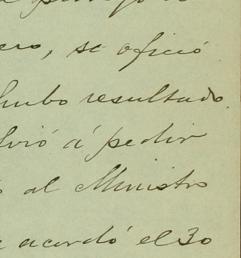 se ofició
hubo resultado.
á pedir
al Ministro
acordó el 30